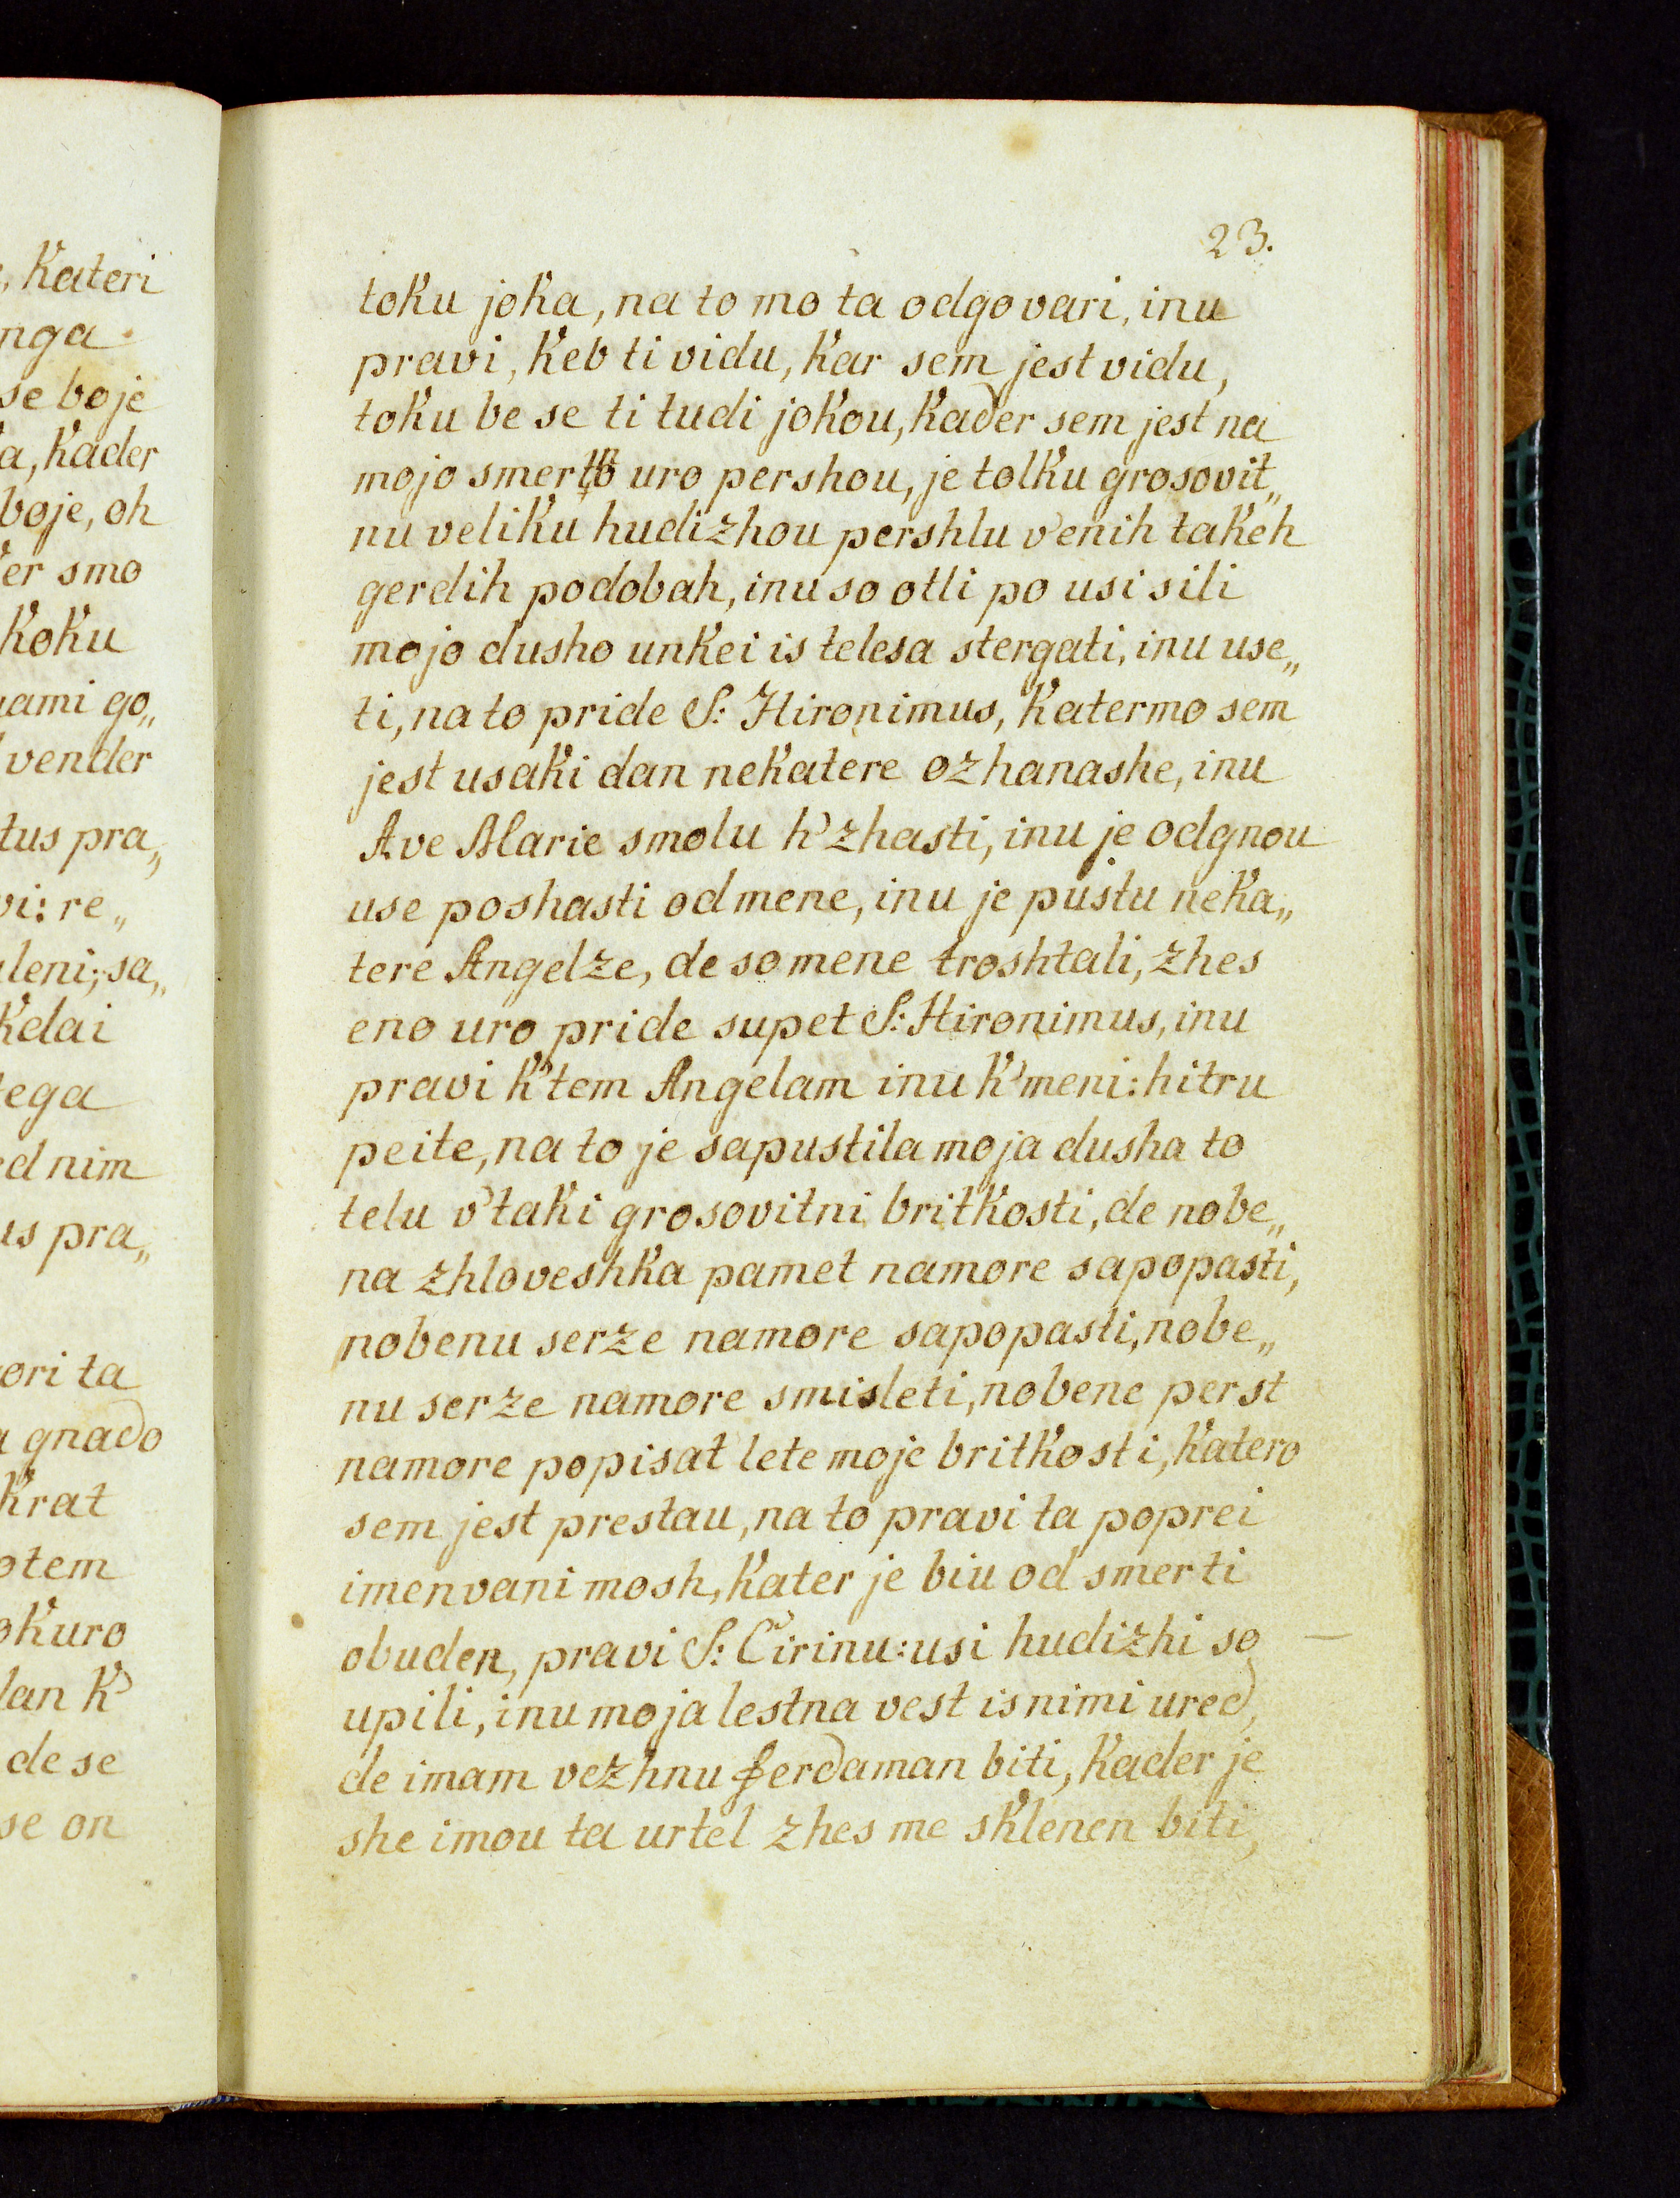 , Kateri
nga.
se boje
a, kader
boje, oh
er smo
Koku
ami go„
vender
tus pra„
vi: re„
leni; sa„
Kdai
tega
ed nim
us pra„
ori ta
gnado
Krat
otem
okuro
dan K'
de se
se on
23.
toku joka, na to mo ta odgovari, inu
pravi, keb ti vidu, kar sem jest vidu,
toku be se ti tudi jokou, kader sem jest na
mojo smertno uro pershou, je tolku grosovit„
nu veliku hudizhou pershlu v'enih takeh
gerdih podobah, inu so otli po usi sili
mojo dusho unkei is telesa stergati, inu use„
ti, na to pride S: Hironimus, katermo sem
jest usaki dan nekatere ozhanashe, inu
Ave Marie smolu h'zhasti, inu je odgnou
use poshasti od mene, inu je pustu neka„
tere Angelze, de so mene troshtali, zhes
eno uro pride supet S: Hironimus, inu
pravi k'tem Angelam inu k'meni: hitru
peite, na to je sapustila moja dusha to
telu v'taki grosovitni britkosti, de nobe„
na zhloveshka pamet namore sapopasti,
nobenu serze namore sapopasti, nobe„
nu serze namore smisleti, nobene perst
namore popisat lete moje britkosti, katero
sem jest prestau, na to pravi ta poprei
imenvani mosh, kater je biu od smerti
obuden, pravi S: Cirinu: usi hudizhi so
upili, inu moja lestna vest is nimi ured,
de imam vezhnu ferdaman biti, kader je
she imou ta urtel zhes me sklenen biti,